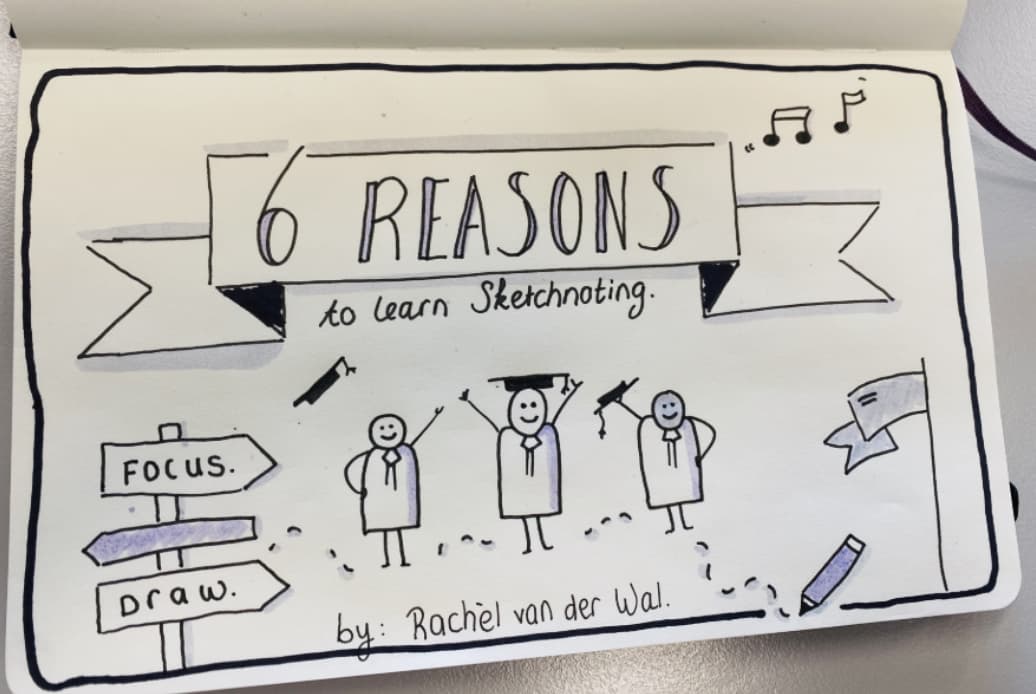 6 REASONS
to learn Sketchnoting.
FOCUS.
Draw.
by: Rachèl van der Wal.